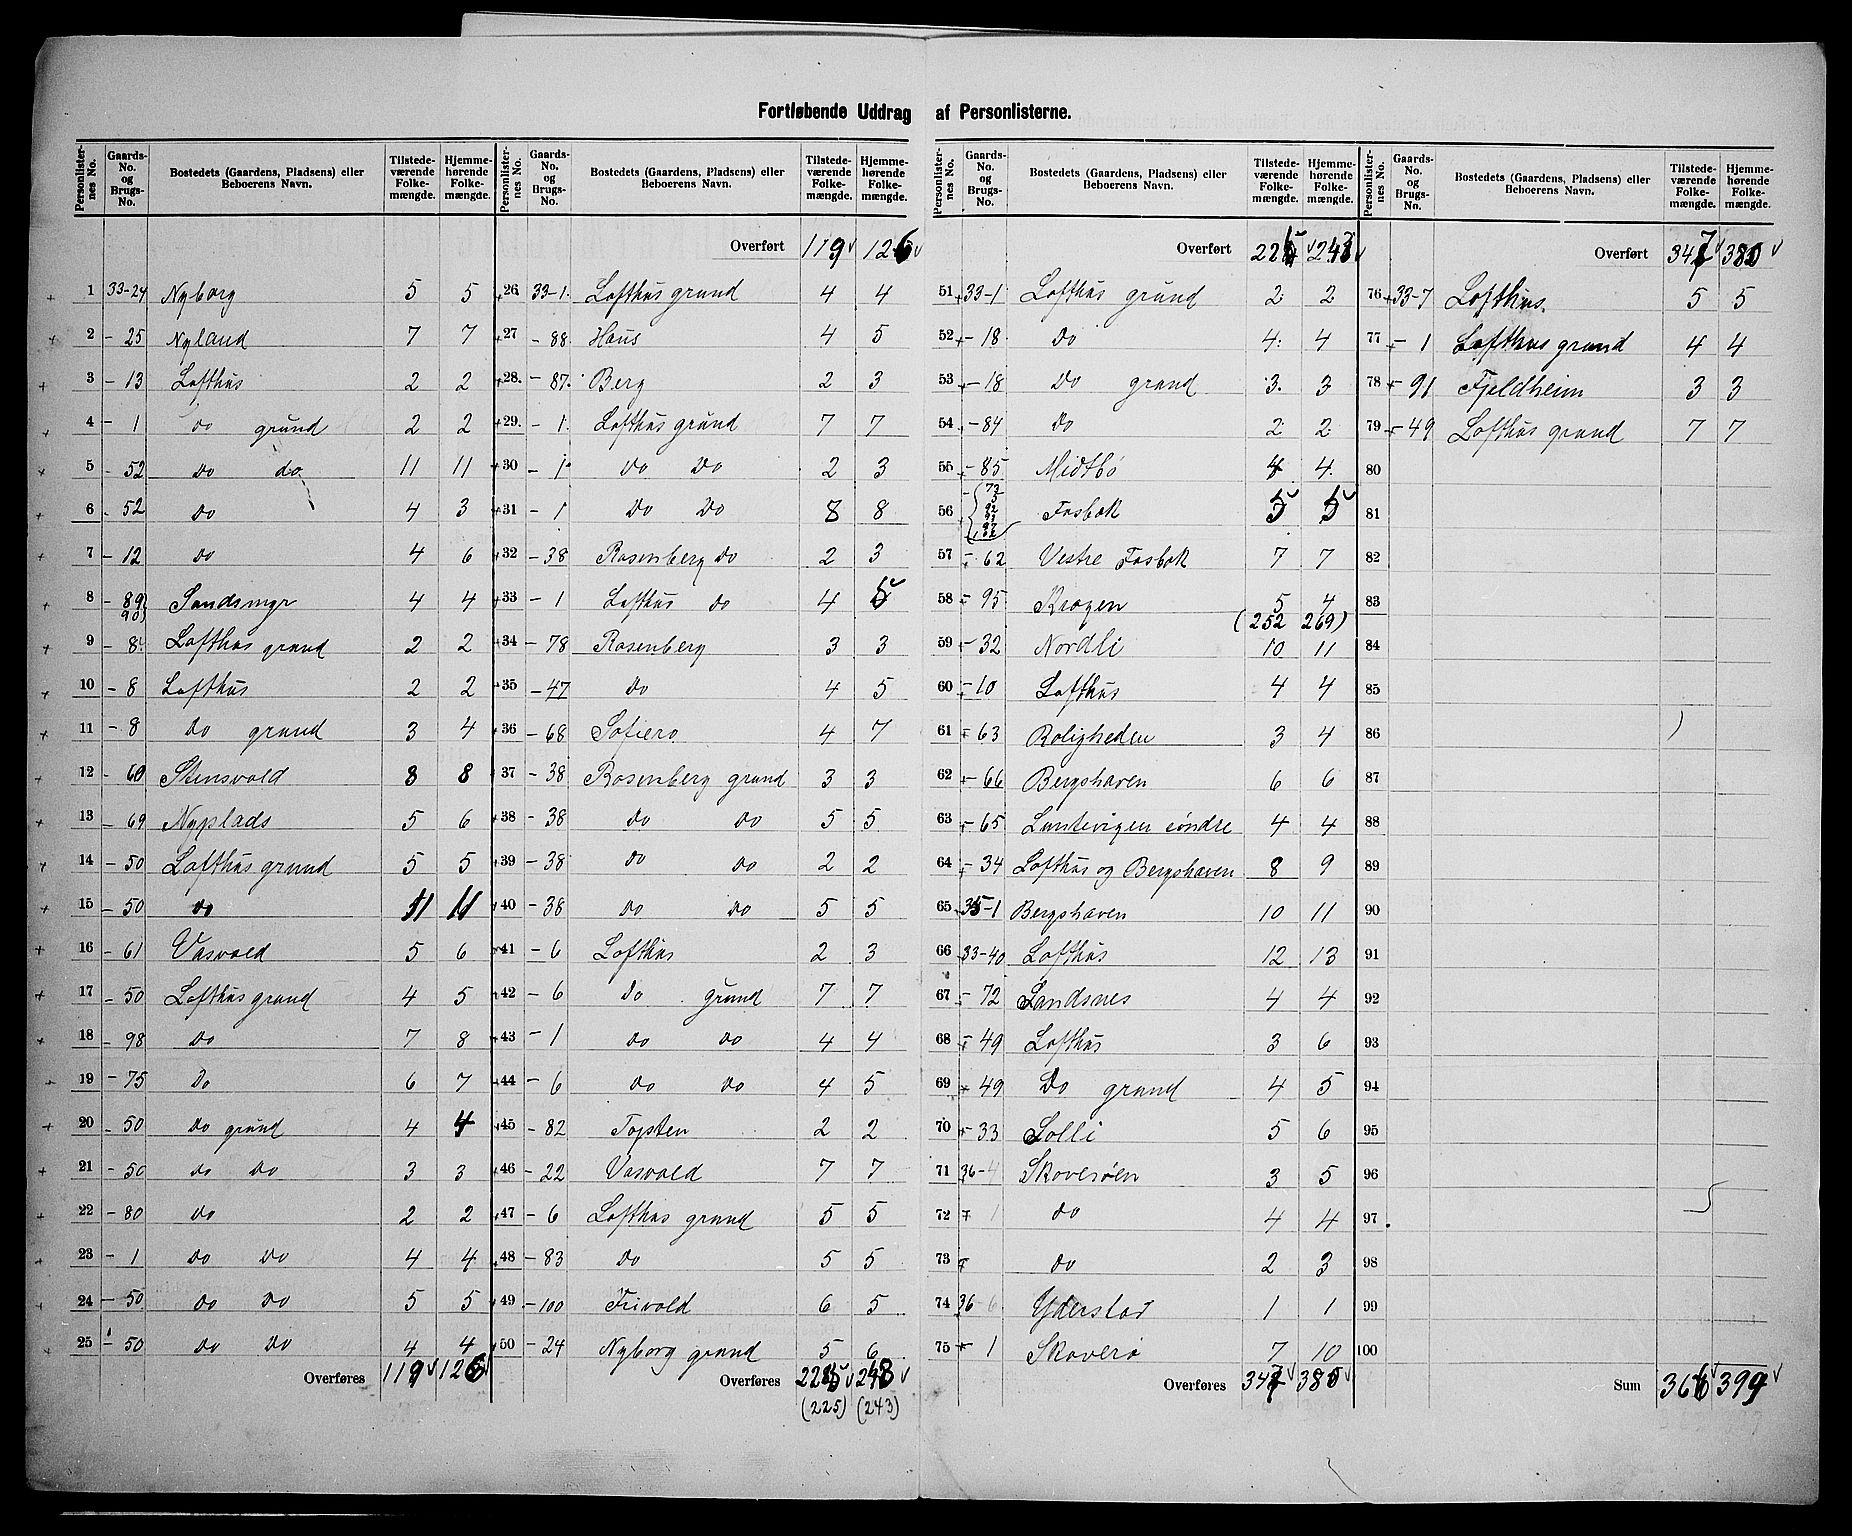 Fortløbende Uddrag af Personlisterne.
Personlister-nes No. | Gaards-No. og Brugs-No. | Bostedets (Gaardens, Pladsens) eller Beboerens Navn. | Tilstede-værende Folke-mængde. | Hjemme-hørende Folke-mængde.
1 33-24 Nyborg 5 5
2 -25 Nyland 7 7
3 -13 Lofthus 2 2
4 -1 do grund 2 2
5 -52 do do 11 11
6 -52 do 4 3
7 -12 do 4 6
8 -89 90) Sandsmyr 4 4
9 -8 Lofthus grund 2 2
10 -8 Lofthus 2 2
11 -8 Do grund 3 4
12 -60 Stensvold 8 8
13 -69 Nyplads 5 6
14 -50 Lofthus grund 5 5
15 -50 do 11 11
16 -61 Vasvold 5 6
17 -50 Lofthus grund 4 5
18 -98 do 7 8
19 -75 Do 6 7
20 -50 do grund 4 4
21 -50 do do 3 3
22 -80 do 2 2
23 -1 do do 4 4
24 -50 do do 5 5
25 -50 do do 4 4
Overføres 119 126
Personlister-nes No. | Gaards-No. og Brugs-No. | Bostedets (Gaardens, Pladsens) eller Beboerens Navn. | Tilstede-værende Folke-mængde. | Hjemme-hørende Folke-mængde.
Overført 119 126
26 33-1 Lofthus grund 4 4
27 -88 Haus 4 5
28 -87 Berg 2 3
29 -1 Lofthus grund 7 7
30 -1 do do 2 3
31 -1 do do 8 8
32 -38 Rosenberg do 2 3
33 -1 Lofthus do 4 5
34 -78 Rosenberg 3 3
35 -47 do 4 5
36 -68 Sofiero 4 7
37 -38 Rosenberg grund 3 3
38 -38 do do 5 5
39 -38 do do 2 2
40 -38 do do 5 5
41 -6 Lofthus 2 3
42 -6 do grund 7 7
43 -1 do do 4 4
44 -6 do do 4 5
45 -82 Topsten 2 2
46 -22 Vasvold 7 7
47 -6 Lofthus grund 5 5
48 -83 do 5 5
49 -100 Frivold 6 5
50 -24 Nyborg grund 5 6
Overføres
(225) (243)
Personlister-nes No. | Gaards-No. og Brugs-No. | Bostedets (Gaardens, Pladsens) eller Beboerens Navn. | Tilstede-værende Folke-mængde. | Hjemme-hørende Folke-mængde.
Overført 225 243
51 33-1 Lofthus grund 2 2
52 -18 do 4 4
53 -18 do grund 3 3
54 -84 do 2 2
55 -85 Midtbö 4 4
56 Fosbæk 5 5
57 -62 Vestre Fosbæk 7 7
58 -95 Krogen 5 4
(252 269)
59 -32 Nordli 10 11
60 -10 Lofthus 4 4
61 -63 Roligheden 3 4
62 -66 Bergshaven 6 6
63 -65 Luntevigen söndre 4 4
64 -34 Lofthus og Bergshaven 8 9
65 35-1 Bergshaven 10 11
66 33-40 Lofthus 12 13
67 -72 Sandsnes 4 4
68 -49 Lofthus 3 6
69 -49 Do grund 4 5
70 -33 Solli 5 6
71 36-4 Skoverøen 3 5
72 -1 do 4 4
73 do 2 3
74 36-6 Yderstad 1 1
75 -1 Skoverø 7 10
Overføres 347 385
Personlister-nes No. | Gaards-No. og Brugs-No. | Bostedets (Gaardens, Pladsens) eller Beboerens Navn. | Tilstede-værende Folke-mængde. | Hjemme-hørende Folke-mængde.
Overført 347 380
76 33-7 Lofthus. 5 5
77 -1 Lofthus grund 4 4
78 -91 Fjeldheim 3 3
79 -49 Lofthus grund 7 7
80
81
82
83
84
85
86
87
88
89
90
91
92
93
94
95
96
97
98
99
100
Sum 366 399